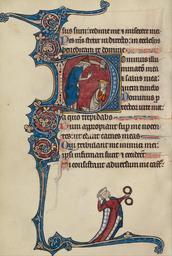 sus sum: redime me & miserere mei
Pes meus stetit in directo: in ecclesiis
benedicam te domine
Dominus illu
minatio mea
& salus mea:
quem timebo
Dominus p
tector vite me
a quo trepidabo
Dum appropiant sup me nocen
tes: ut edant carnes meas
Qui tribulant me inimici mei:
ipsi infirmati sunt & ceciderunt
Si consistant adversum me cast